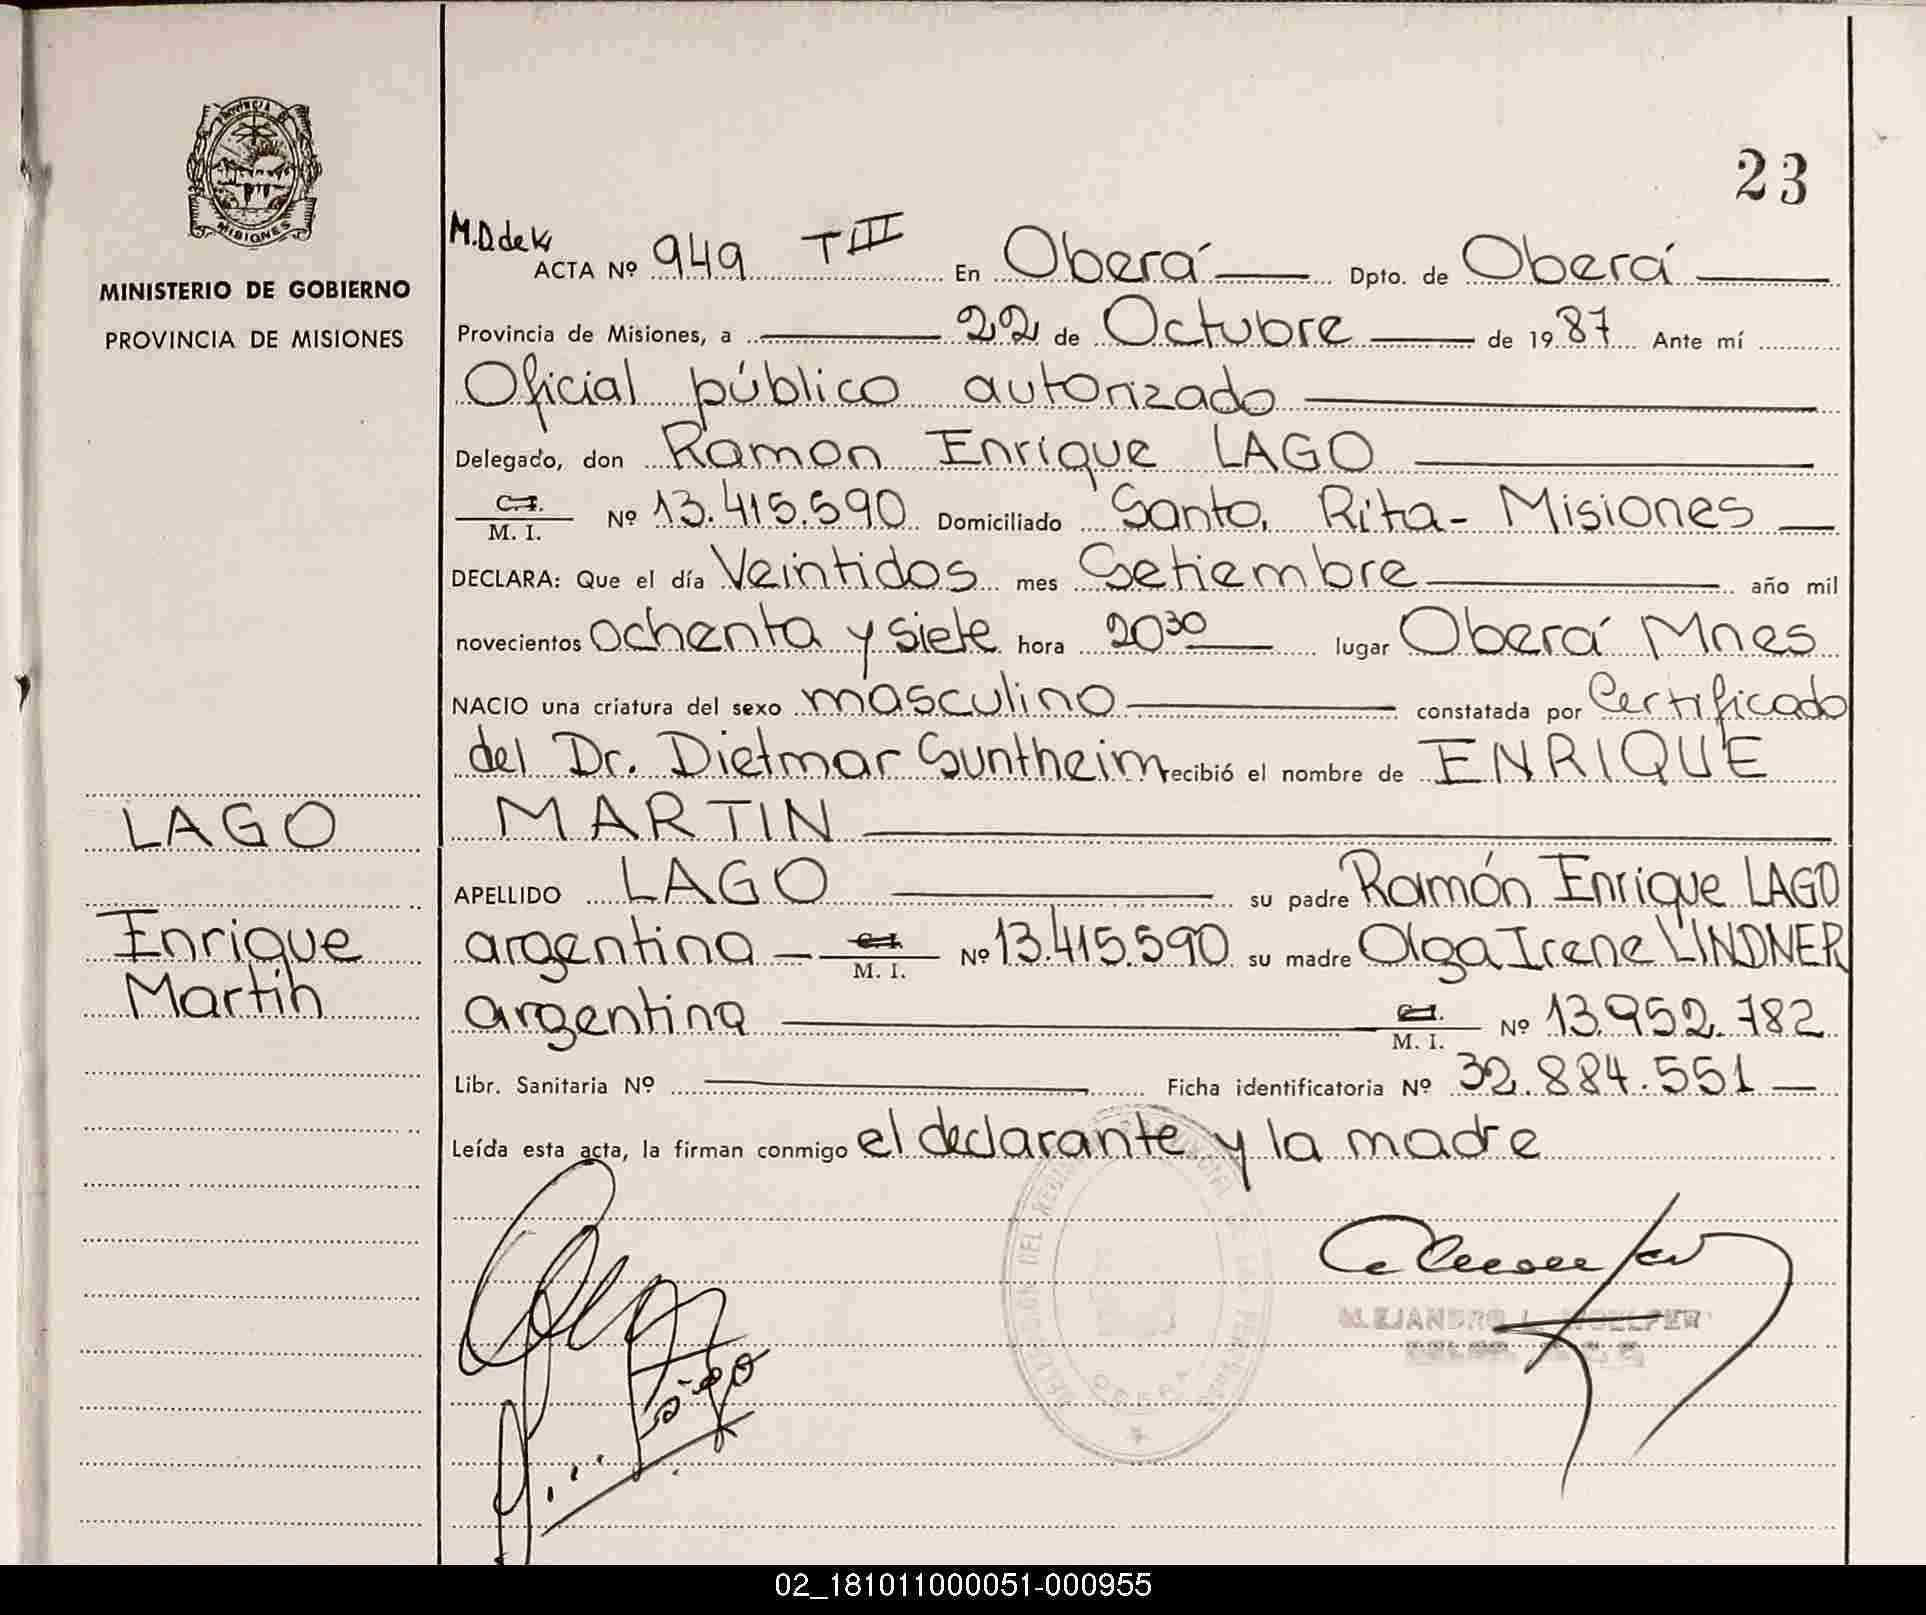 PROVINCIA DE
MISIONES
MINISTERIO DE GOBIERNO
PROVINCIA DE MISIONES
LAGO
Enrique
Martin
23
M.D de K
ACTA Nº 949 T III En Oberá Dpto. de Oberá
Provincia de Misiones, a 22 de Octubre de 1987 Ante mí
Oficial público autorizado
Delegado, don Ramon Enrique LAGO
C.I.
M. I. Nº 13.415.590 Domiciliado Santa Rita - Misiones
DECLARA: Que el día Veintidos mes Setiembre año mil
novecientos ochenta y siete hora 20 30 lugar Oberá Mnes
NACIO una criatura del sexo masculino constatada por Certificado
del Dr. Dietmar Suntheim recibió el nombre de ENRIQUE
MARTIN
APELLIDO LAGO su padre Ramón Enrique LAGO
argentino C.I. M. I. Nº 13.415.590 su madre Olga Irene LINDNER
argentina C.I. M. I. Nº 13.952.782
Libr. Sanitaria Nº Ficha identificatoria Nº 32.884.551
Leída esta acta, la firman conmigo el declarante y la madre
02_181011000051-000955